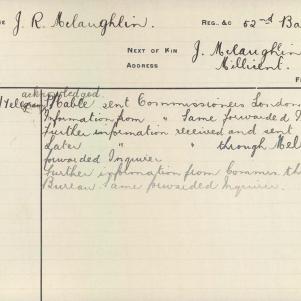 J. R. McLaughlin. REG. &C 52nd Ba
NEXT OF KIN J. McLaughlin
ADDRESS Millicent.
acknowledged
Cable sent Commissioners London
Information from " Same forwarded I
Further information received and sent
Later " " through Mel
forwarded Inquirer
Further information from Commrs. th
Bureau. Same forwarded Inquirer.